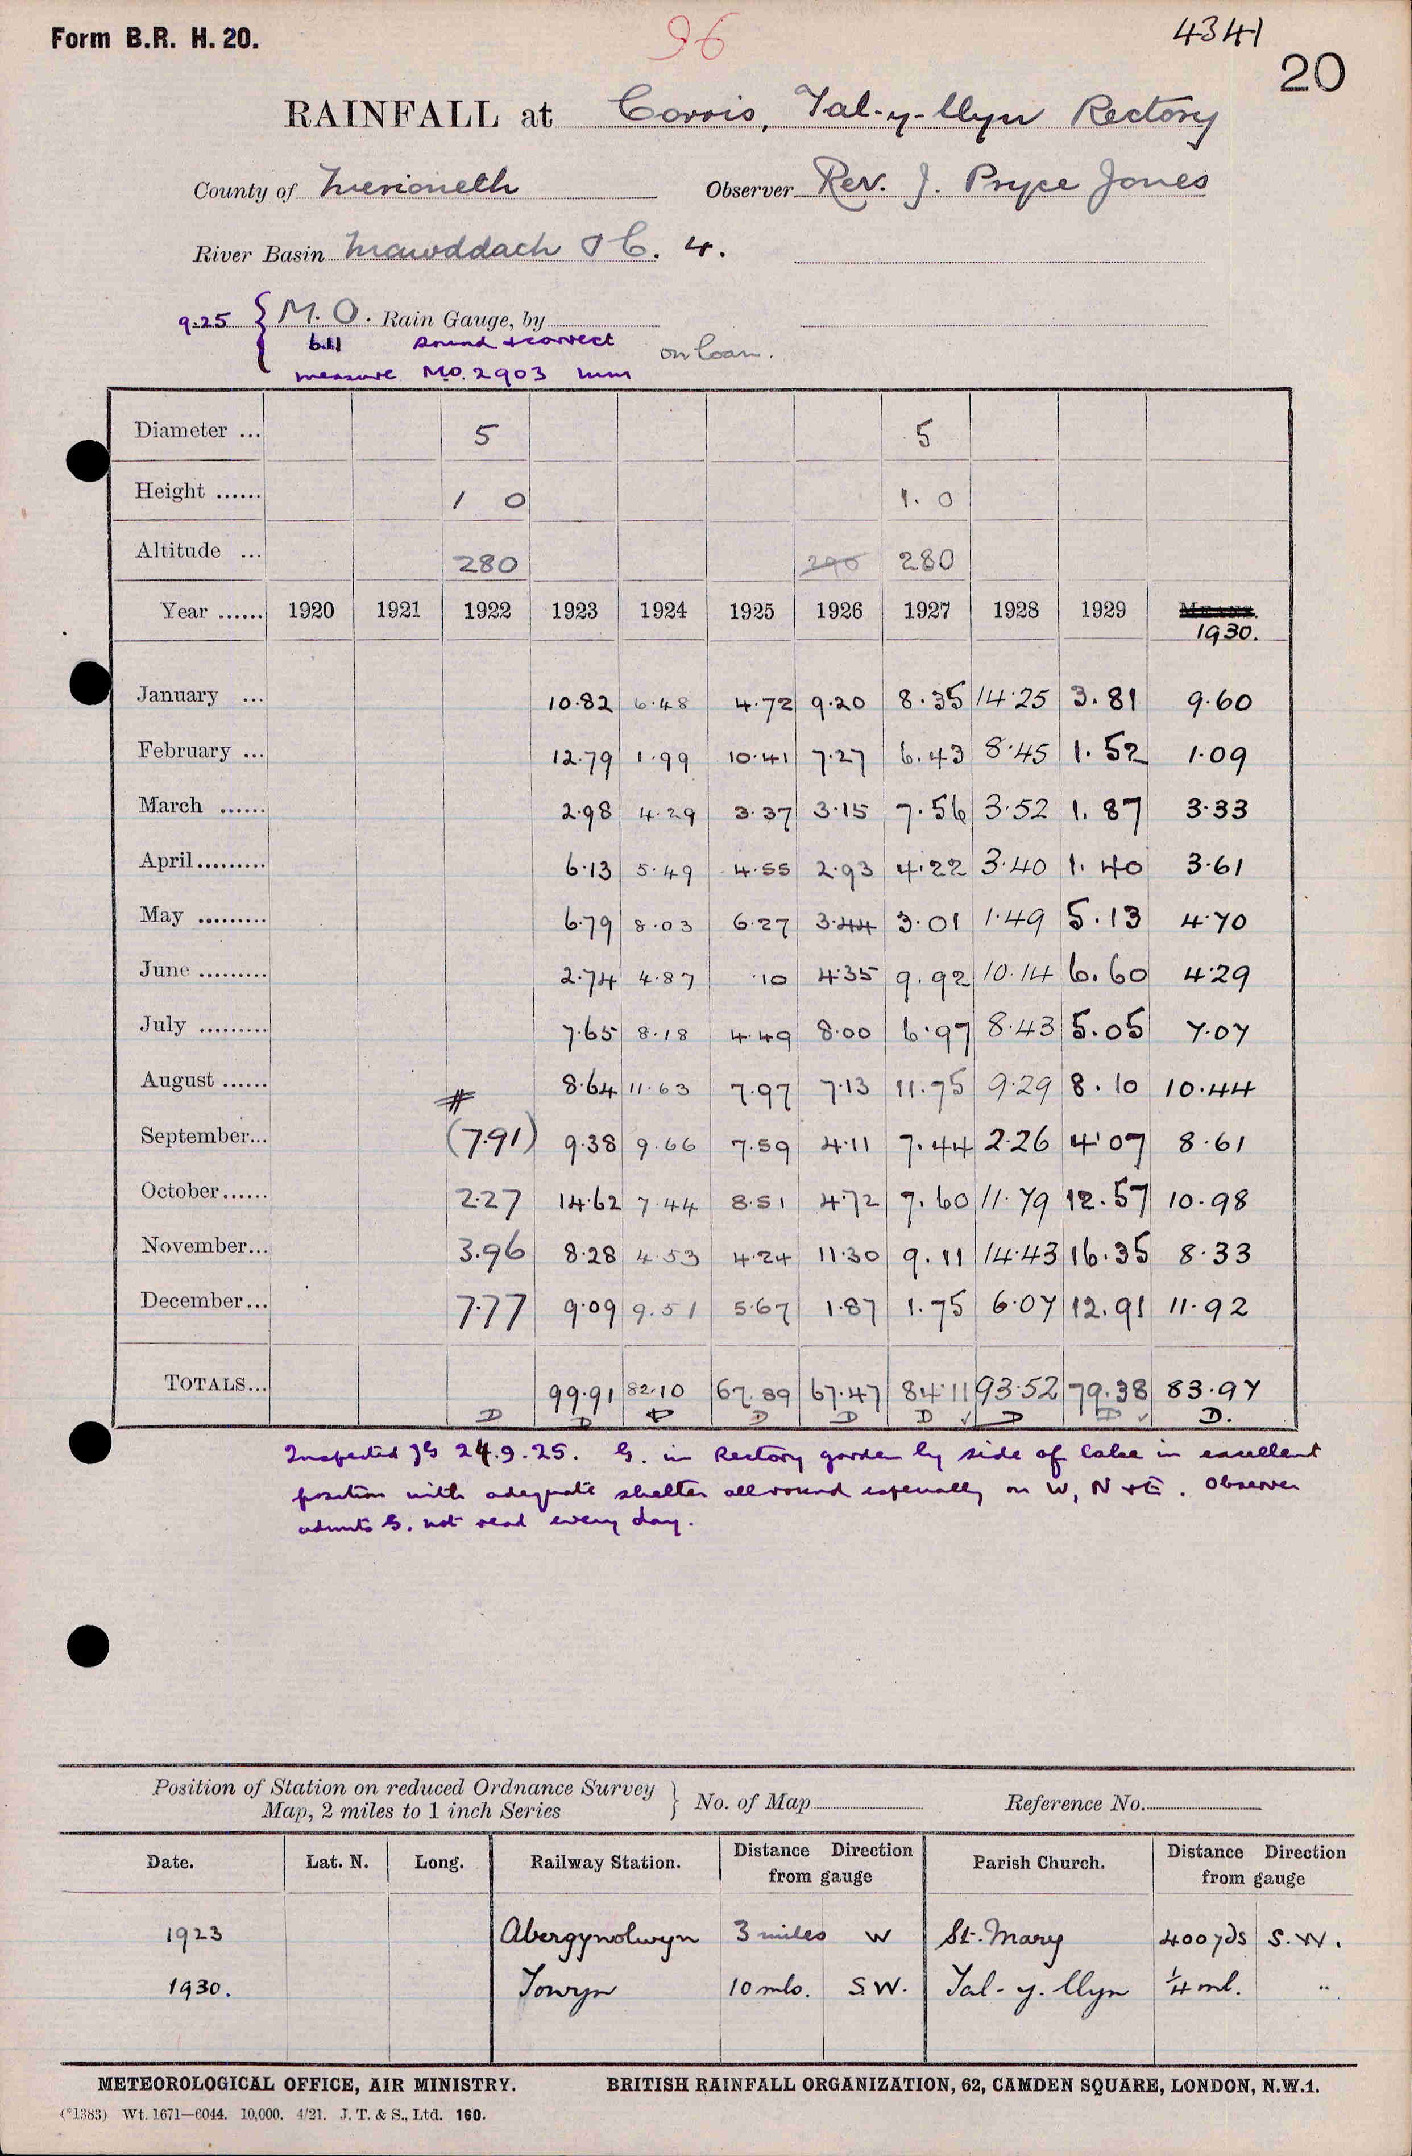 Form B.R. H. 20.
96
4341
20
RAINFALL at Corris, Tal-y-llyn Rectory
County of Merioneth Observer Rev. J. Pryce Jones
River Basin Mawddach &C. 4.
9.25 { M.O. Rain Gauge, by
611 sound & correct on loan.
measure M.O. 2903 mm
Diameter ... 5 5
Height ...... 1 0 1. 0
Altitude ... 280 290 280
Year ...... 1920 1921 1922 1923 1924 1925 1926 1927 1928 1929 MEANS. 1930.
January ... 10.82 6.48 4.72 9.20 8.35 14.25 3.81 9.60
February ... 12.79 1.99 10.41 7.27 6.43 8.45 1.52 1.09
March ...... 2.98 4.29 3.37 3.15 7.56 3.52 1.87 3.33
April ......... 6.13 5.49 4.55 2.93 4.22 3.40 1.40 3.61
May ......... 6.79 8.03 6.27 3.44 3.01 1.49 5.13 4.70
June ......... 2.74 4.87 .10 4.35 9.92 10.14 6.60 4.29
July ......... 7.65 8.18 4.49 8.00 6.97 8.43 5.05 7.07
August ...... # 8.64 11.63 7.97 7.13 11.75 9.29 8.10 10.44
September... (7.91) 9.38 9.66 7.59 4.11 7.44 2.26 4.07 8.61
October ...... 2.27 14.62 7.44 8.51 4.72 7.60 11.79 12.57 10.98
November... 3.96 8.28 4.53 4.24 11.30 9.11 14.43 16.35 8.33
December... 7.77 9.09 9.51 5.67 1.87 1.75 6.07 12.91 11.92
TOTALS... 99.91 82.10 67.89 67.47 84.11 93.52 79.38 83.97
D D D D D D ✓ D D ✓ D.
Inspected JG 24.9.25. G. in Rectory garden by side of lake in excellent
position with adequate shelter all round especially on W, N & E. Observer
admits G. not read every day.
Position of Station on reduced Ordnance Survey
Map, 2 miles to 1 inch Series } No. of Map Reference No.
Date. Lat. N. Long. Railway Station. Distance Direction from gauge Parish Church. Distance Direction from gauge
1923 Abergynolwyn 3 miles W St. Mary 400 yds S.W.
1930. Towyn 10 mls. S.W. Tal-y-llyn ¼ ml. "
METEOROLOGICAL OFFICE, AIR MINISTRY. BRITISH RAINFALL ORGANIZATION, 62, CAMDEN SQUARE, LONDON, N.W.1.
(*1383) Wt. 1671—6044. 10,000. 4/21. J. T. & S., Ltd. 160.